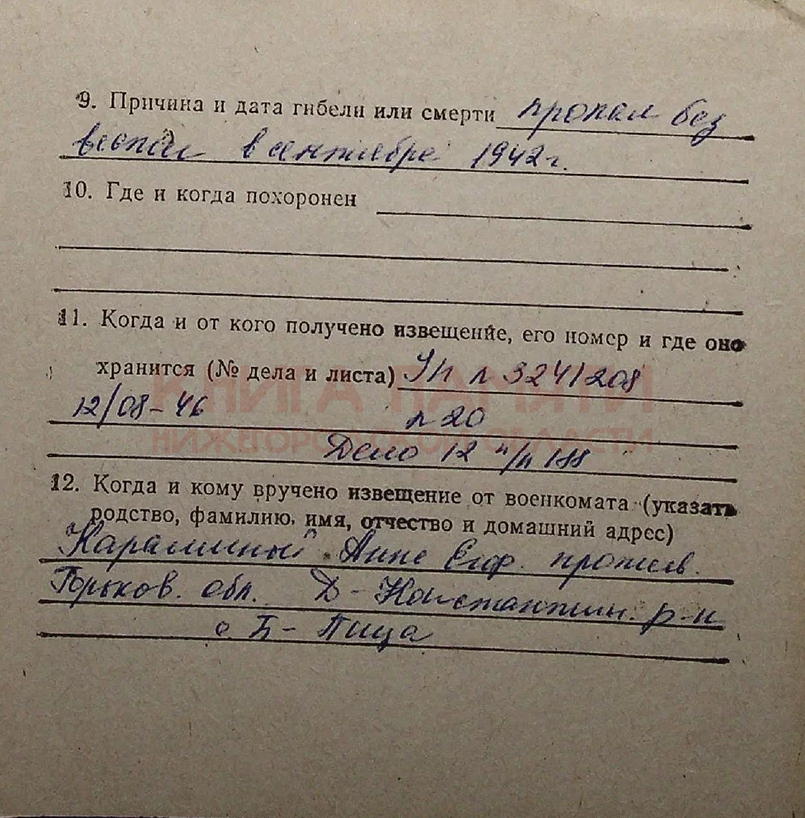 9. Причина и дата гибели или смерти пропал без
вести в сентябре 1942 г.
10. Где и когда похоронен
11. Когда и от кого получено извещение, его номер и где оно
хранится (№ дела и листа) УП л 3241208
12/08-46 л 20
Дело 12 п/п 188
КНИГА ПАМЯТИ
НИЖЕГОРОДСКОЙ ОБЛАСТИ
12. Когда и кому вручено извещение от военкомата (указать
родство, фамилию, имя, отчество и домашний адрес)
Анне Егор. прожив.
Горьков. обл. Д-Константин. р-н
с Б-Пица